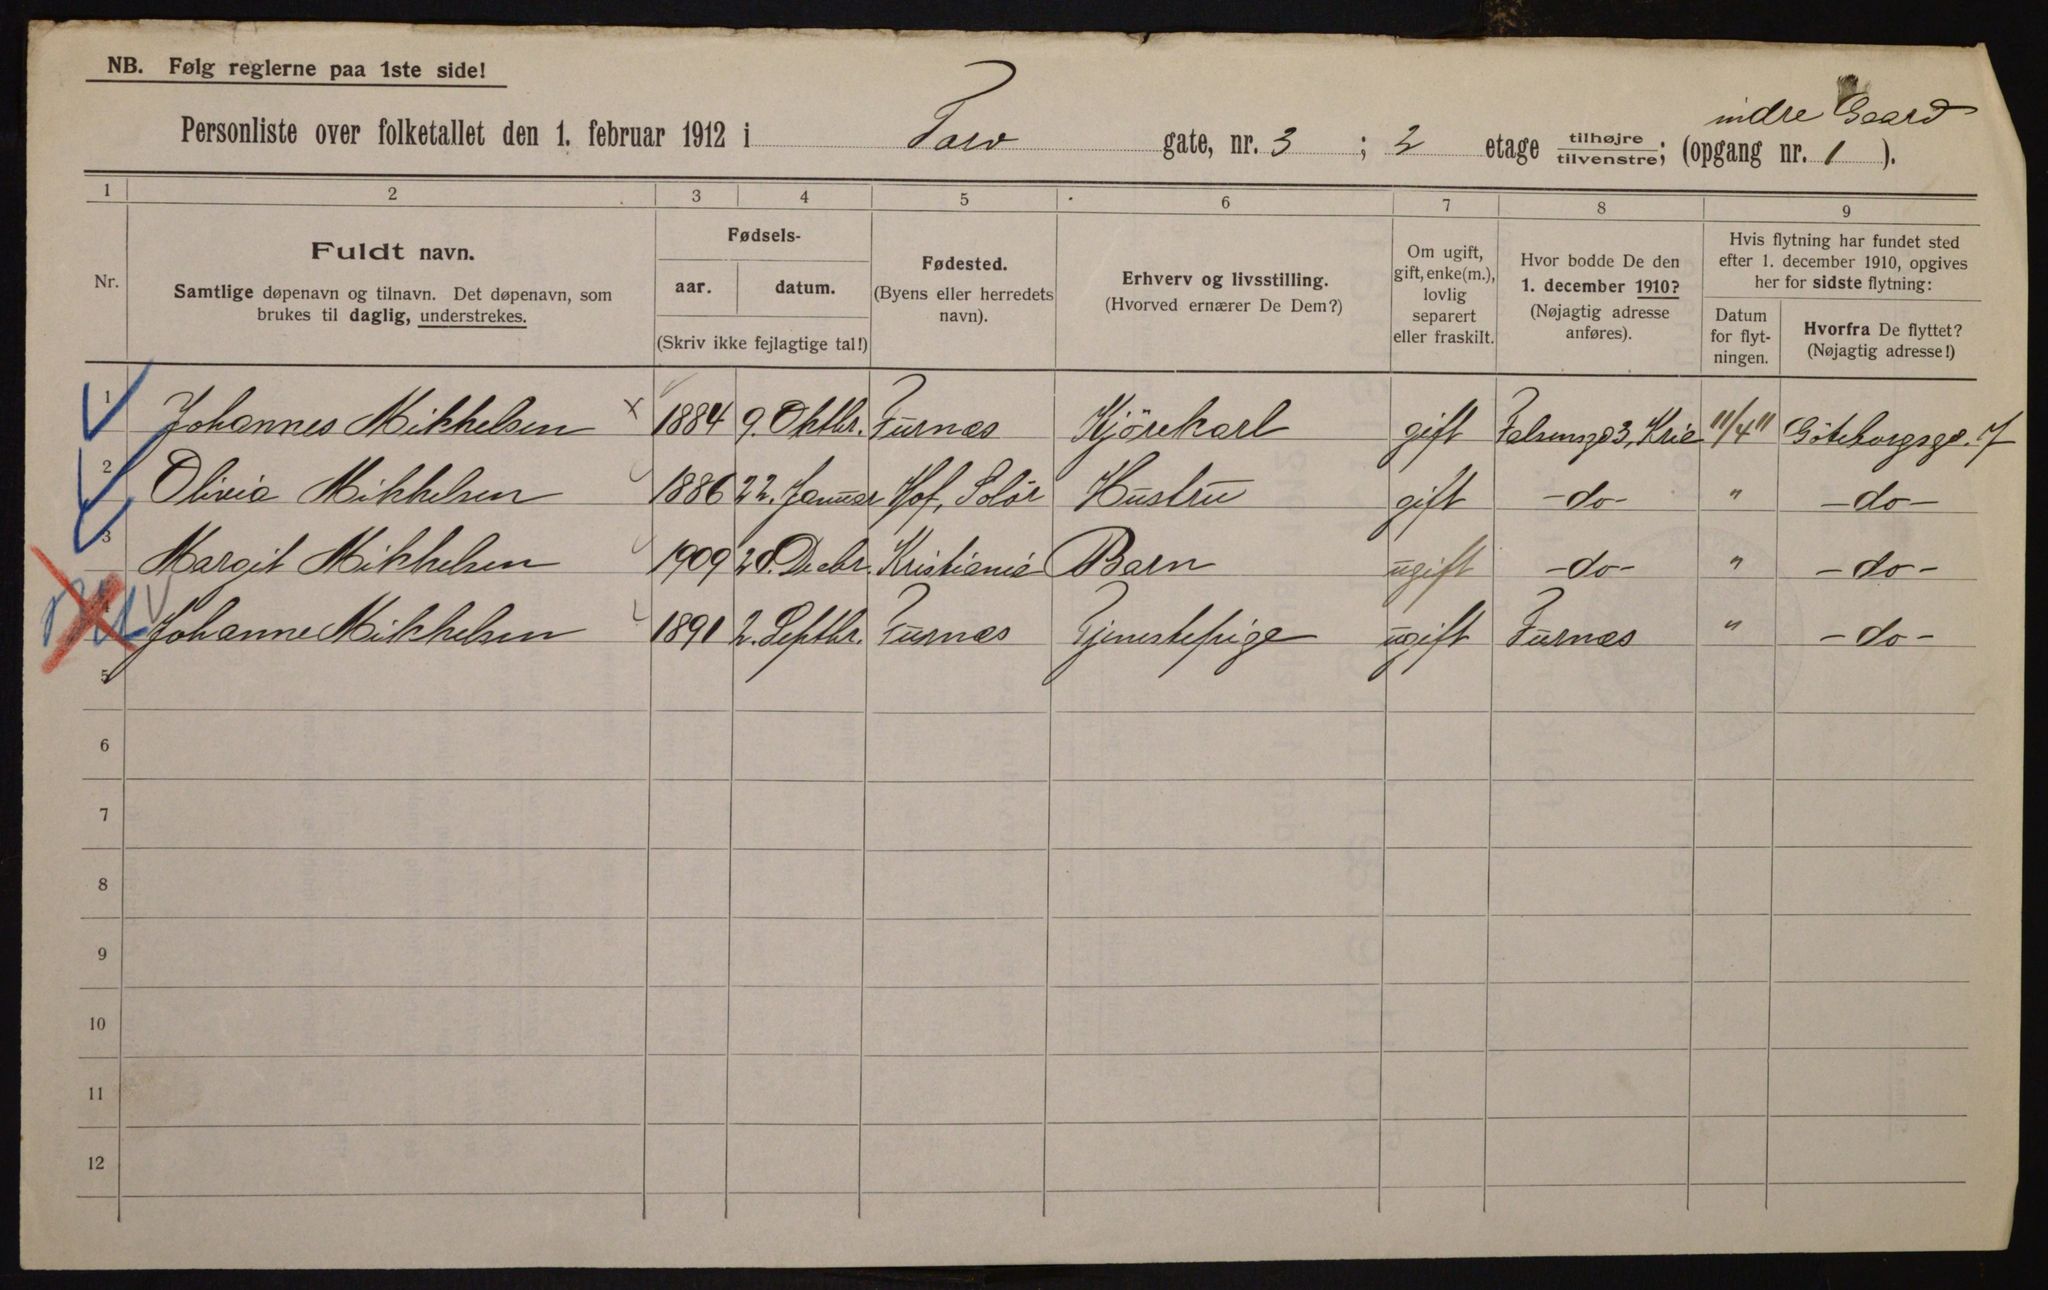 NB. Følg reglerne paa 1ste side!
indre Gaard
Personliste over folketallet den 1. februar 1912 i Torv gate, nr. 3 ; 2 etage tilhøjre tilvenstre; (opgang nr. 1 ).
1 2 3 4 5 6 7 8 9
Nr.
Fuldt navn.
Samtlige døpenavn og tilnavn. Det døpenavn, som
brukes til daglig, understrekes.
Fødsels-
aar. datum.
(Skriv ikke fejlagtige tal!)
Fødested.
(Byens eller herredets
navn).
Erhverv og livsstilling.
(Hvorved ernærer De Dem?)
Om ugift,
gift, enke(m.),
lovlig
separert
eller fraskilt.
Hvor bodde De den
1. december 1910?
(Nøjagtig adresse
anføres).
Hvis flytning har fundet sted
efter 1. december 1910, opgives
her for sidste flytning:
Datum
for flyt-
ningen.
Hvorfra De flyttet?
(Nøjagtig adresse!)
1 Johannes Mikkelsen x 1884 9. Oktbr. Furnæs Kjørekarl gift 3, Kria 11/4 11 Göteborgsgd. 7
2 Olivia Mikkelsen 1886 22. Januar Hof, Solør Hustru gift -do- " -do-
3 Margit Mikkelsen 1909 20. Decbr. Kristiania Barn ugift -do- " -do-
4 Johanne Mikkelsen 1891 2. Septbr. Furnæs Tjenestepige ugift Furnæs " -do-
5
6
7
8
9
10
11
12